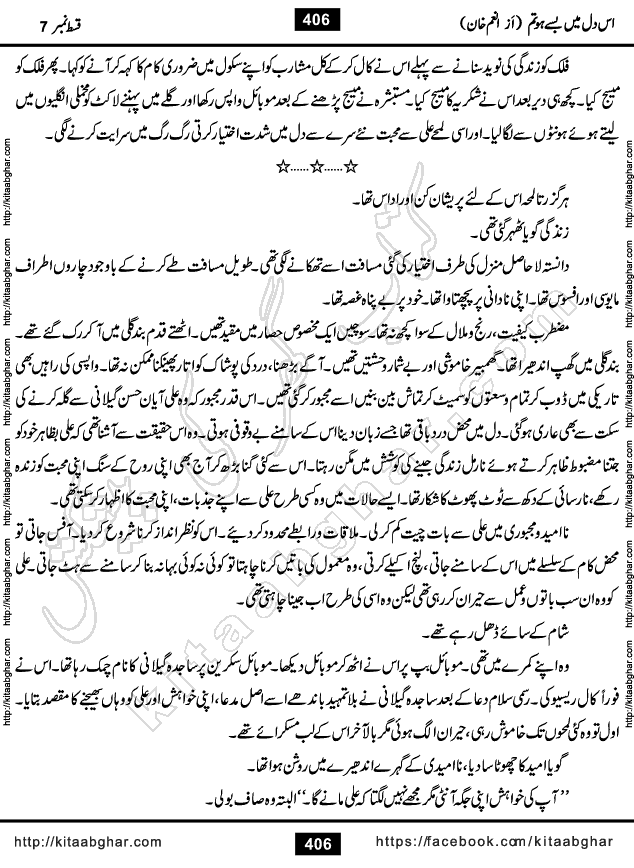 اس دل میں بسے ہو تم (از انعم خان)
406
قسط نمبر 7
فلک کو زندگی کی نوید سنانے سے پہلے اس نے کال کر کے کل مشارب کو اپنے سکول میں ضروری کام کا کہہ کر آنے کو کہا۔ پھر فلک کو
میسج کیا۔ کچھ ہی دیر بعد اس نے شکریہ کا میسج کیا۔ مستبشرہ نے میسج پڑھنے کے بعد موبائل واپس رکھا اور گلے میں پہنے لاکٹ کو مخملی انگلیوں میں
لیتے ہوئے ہونٹوں سے لگا لیا۔ اور اسی لمحے علی سے محبت نئے سرے سے دل میں شدت اختیار کرتی رگ رگ میں سرایت کرنے لگی۔
☆......☆......☆
ہر گزرتا لمحہ اس کے لئے پریشان کن اور اداس تھا۔
زندگی گویا ٹھہر گئی تھی۔
دانستہ لاحاصل منزل کی طرف اختیار کی گئی مسافت اسے تھکانے لگی تھی۔ طویل مسافت طے کرنے کے باوجود چاروں اطراف
مایوسی اور افسوس تھا۔ اپنی نادانی پر پچھتاوا تھا۔ خود پر بے پناہ غصہ تھا۔
مضطرب کیفیت، رنج و ملال کے سوا کچھ نہ تھا۔ سوچیں ایک مخصوص حصار میں مقید تھیں۔ اٹھتے قدم بند گلی میں آ کر رک گئے تھے۔
بند گلی میں گھپ اندھیرا تھا۔ گھمبیر خاموشی اور بے شمار وحشتیں تھیں۔ آگے بڑھنا، درد کی پوشاک کو اتار پھینکنا ممکن نہ تھا۔ واپسی کی راہیں بھی
تاریکی میں ڈوب کر تمام وسعتوں کو سمیٹ کر تماش بین بنیں اسے مجبور کر گئی تھیں۔ اس قدر مجبور کہ وہ علی آیان حسن گیلانی سے گلہ کرنے کی
سکت سے بھی عاری ہو گئی۔ دل میں محض درد باقی تھا جسے زبان دینا اس کے سامنے بے وقوفی ہوتی۔ وہ اس حقیقت سے آشنا تھی کہ علی بظاہر خود کو
جتنا مضبوط ظاہر کرتے ہوئے نارمل زندگی جینے کی کوشش میں مگن رہتا۔ اس سے کئی گنا بڑھ کر آج بھی اپنی روح کے سنگ اپنی محبت کو زندہ
رکھے، نارسائی کے دکھ سے ٹوٹ پھوٹ کا شکار تھا۔ ایسے حالات میں وہ کسی طرح علی سے اپنے جذبات، اپنی محبت کا اظہار کر سکتی تھی۔
ناامید و مجبوری میں علی سے بات چیت کم کر لی۔ ملاقات و رابطے محدود کر دیئے۔ اس کو نظر انداز کرنا شروع کر دیا۔ آفس جاتی تو
محض کام کے سلسلے میں اس کے سامنے جاتی، لنچ اکیلے کرتی، وہ معمول کی باتیں کرنا چاہتا تو کوئی نہ کوئی بہانہ بنا کر سامنے سے ہٹ جاتی۔ علی
کو وہ ان سب باتوں و عمل سے حیران کر رہی تھی لیکن وہ اسی کی طرح اب جینا چاہتی تھی۔
شام کے سائے ڈھل رہے تھے۔
وہ اپنے کمرے میں تھی۔ موبائل بپ پر اس نے اٹھ کر موبائل دیکھا۔ موبائل سکرین پر ساجدہ گیلانی کا نام چمک رہا تھا۔ اس نے
فوراً کال ریسیو کی۔ رسمی سلام دعا کے بعد ساجدہ گیلانی نے بلا تمہید باندھے اسے اصل مدعا، اپنی خواہش اور علی کو وہاں بھیجنے کا مقصد بتایا۔
اول تو وہ کئی لمحوں تک خاموش رہی، حیران الگ ہوئی مگر بالآخر اس کے لب مسکرائے تھے۔
گویا امید کا چھوٹا سا دیا، ناامیدی کے گہرے اندھیرے میں روشن ہوا تھا۔
’’آپ کی خواہش اپنی جگہ آنٹی مگر مجھے نہیں لگتا کہ علی مانے گا۔‘‘ البتہ وہ صاف بولی۔
http://kitaabghar.com
http://kitaabghar.com
http://kitaabghar.com
http://kitaabghar.com
http://kitaabghar.com
http://kitaabghar.com
http://kitaabghar.com
http://kitaabghar.com
http://kitaabghar.com
http://kitaabghar.com
http://kitaabghar.com
http://kitaabghar.com
کتاب گھر کی پیشکش
kitaabghar.com
http://kitaabghar.com
406
https://facebook.com/kitaabghar